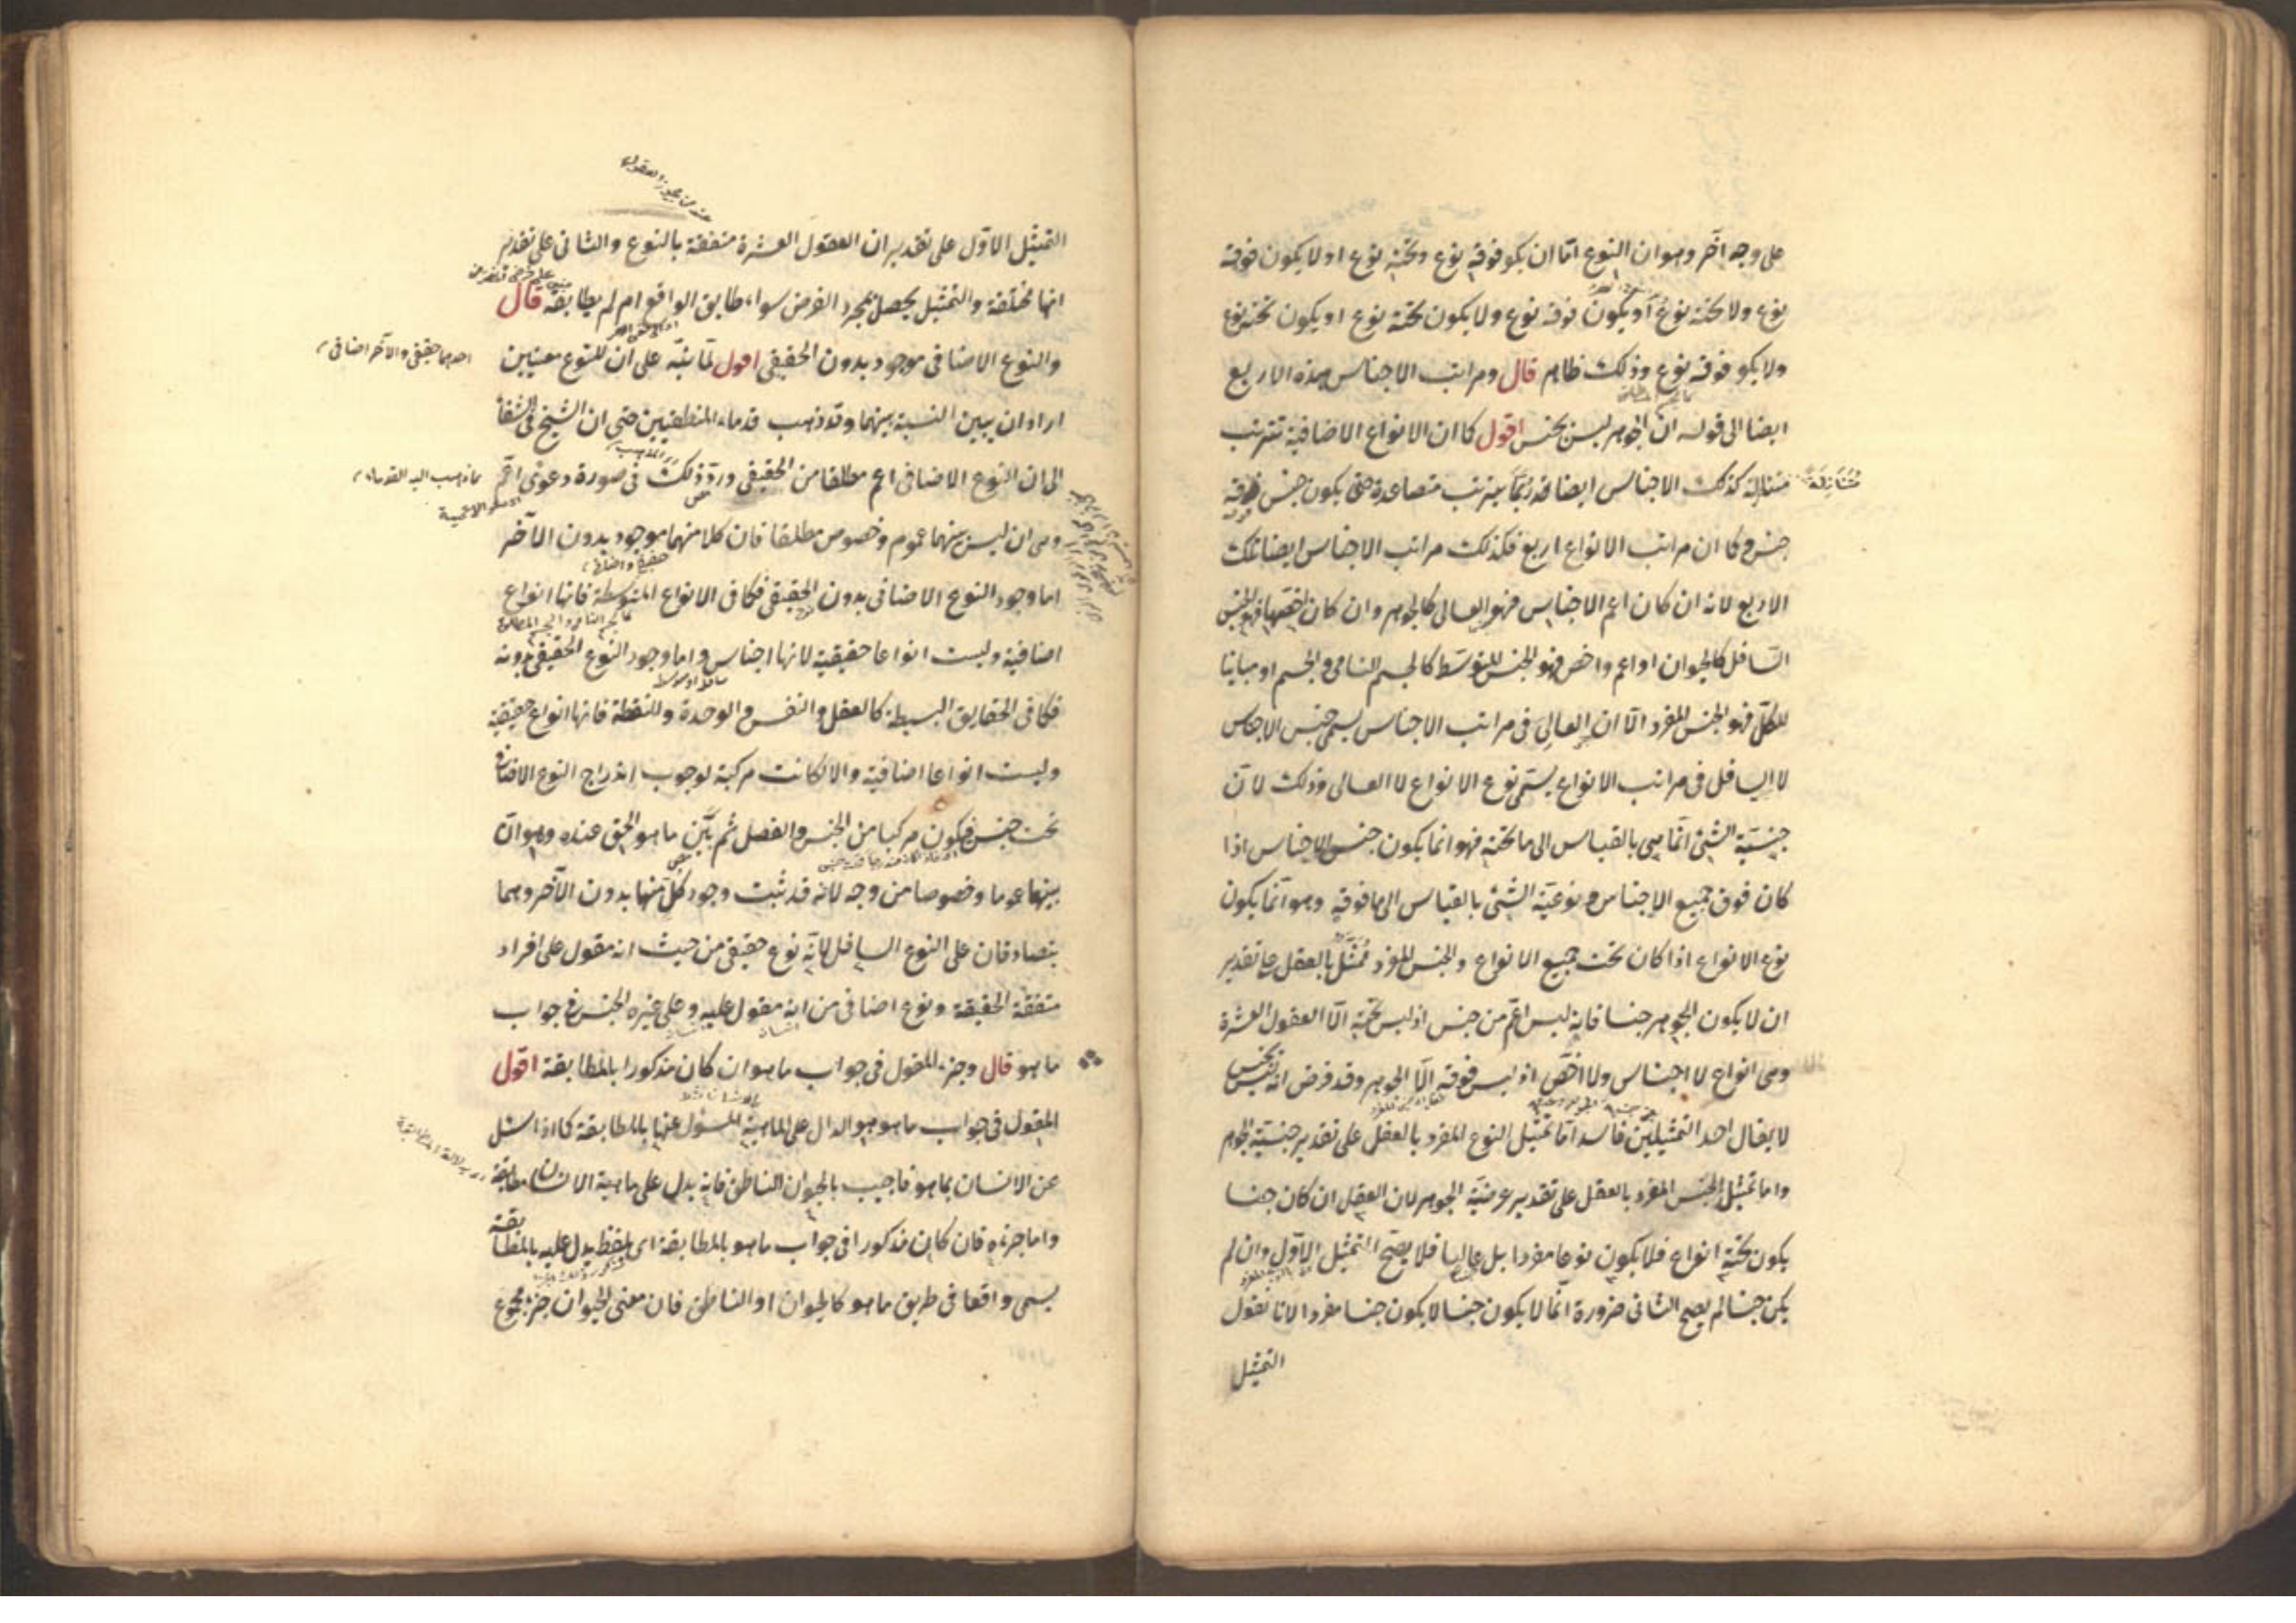 على وجه اخر وهو ان النوع اما ان يكو فوقه نوع وتحته نوع او لا يكون فوقه
نوع ولا تحته نوع او يكون فوقه نوع ولا يكون تحته نوع او يكون تحته نوع
ولا يكو فوقه نوع وذلك ظاهر قال ومراتب الاجناس هذه الاربع
ايضا الى قوله ان الجوهر ليس بجنس اقول كما ان الانواع الاضافية تترتب
متنازلة كذلك الاجناس ايضا قد ربما يترتب متصاعدة حتى يكون جنس فوقه
جنس وكما ان مراتب الانواع اربع فكذلك مراتب الاجناس ايضا تلك
الاربع لانه ان كان اعم الاجناس فهو العالى كالجوهر وان كان اخصها فهو الجنس
السافل كالحيوان او اعم واخص فهو الجنس المتوسط كالجسم النامى والجسم او مباينا
للكل فهو الجنس المفرد الا ان العالى فى مراتب الاجناس يسمى جنس الاجناس
لا السافل فى مراتب الانواع يسمى نوع الانواع لا العالى وذلك لان
جنسية الشئ انما هى بالقياس الى ما تحته فهو انما يكون جنس الاجناس اذا
كان فوق جميع الاجناس ونوعية الشئ بالقياس الى ما فوقه وهو انما يكون
نوع الانواع اذا كان تحت جميع الانواع والجنس المفرد ممثل بالعقل على تقدير
ان لا يكون الجوهر جنسا فانه ليس اعم من جنس اذ ليس تحته الا العقول العشرة
وهى انواع لا اجناس ولا اخص اذ ليس فوقه الا الجوهر وقد فرض انه ليس بجنس
لا يقال احد التمثيلين فاسد اما تمثيل النوع المفرد بالعقل على تقدير جنسية الجوهر
واما تمثيل الجنس المفرد بالعقل على تقدير عرضية الجوهر لان العقل ان كان جنسا
يكون تحته انواع فلا يكون نوعا مفردا بل عاليا فلا يصح التمثيل الاول وان لم
يكن جنسا لم يصح الثانى ضرورة ان ما لا يكون جنسا لا يكون جنسا مفردا لانا نقول
التمثيل
التمثيل الاول على تقدير ان العقول العشرة متفقة بالنوع والثانى على تقدير
انها مختلفة والتمثيل يحصل بمجرد الفرض سواء طابق الواقع ام لم يطابقه قال
والنوع الاضافى موجود بدون الحقيقى اقول لما نبه على ان للنوع معنيين
احدهما حقيقى والآخر اضافى
اراد ان يبين النسبة بينهما وقد ذهب قدماء المنطقيين حتى ان الشيخ فى الشفا
الى ان النوع الاضافى اعم مطلقا من الحقيقى ورد ذلك فى صورة دعوى اعم
ما ذهب اليه القدماء
وهى ان ليس بينهما عموم وخصوص مطلقا فان كلا منهما موجود بدون الآخر
حقيقى واضافى
اما وجود النوع الاضافى بدون الحقيقى فكما فى الانواع المتوسطة فانها انواع
اضافية وليست انواعا حقيقية لانها اجناس واما وجود النوع الحقيقى بدونه
فكما فى الحقايق البسيطة كالعقل والنفس والوحدة والنقطة فانها انواع حقيقية
وليست انواعا اضافية والا لكانت مركبة لوجوب اندراج النوع الاضافى
تحت جنس فيكون مركبا من الجنس والفصل ثم بين ما هو الحق عنده وهو ان
بينهما عموما وخصوصا من وجه لانه قد ثبت وجود كل منهما بدون الآخر وهما
يتصادقان على النوع السافل لانه نوع حقيقى من حيث انه مقول على افراد
متفقة الحقيقة ونوع اضافى من انه مقول عليه وعلى غيره الجنس فى جواب
ما هو قال وجزء المقول فى جواب ما هو ان كان مذكورا بالمطابقة اقول
المقول فى جواب ما هو هو الدال على الماهية المسؤل عنها بالمطابقة كما اذا سئل
عن الانسان بما هو فاجيب بالحيوان الناطق فانه يدل على ماهية الانسان مطابقة
واما جزءه فان كان مذكورا فى جواب ما هو بالمطابقة اى بلفظ يدل عليه بالمطابقة
يسمى واقعا فى طريق ما هو كالحيوان او الناطق فان معنى الحيوان جزء لمجموع